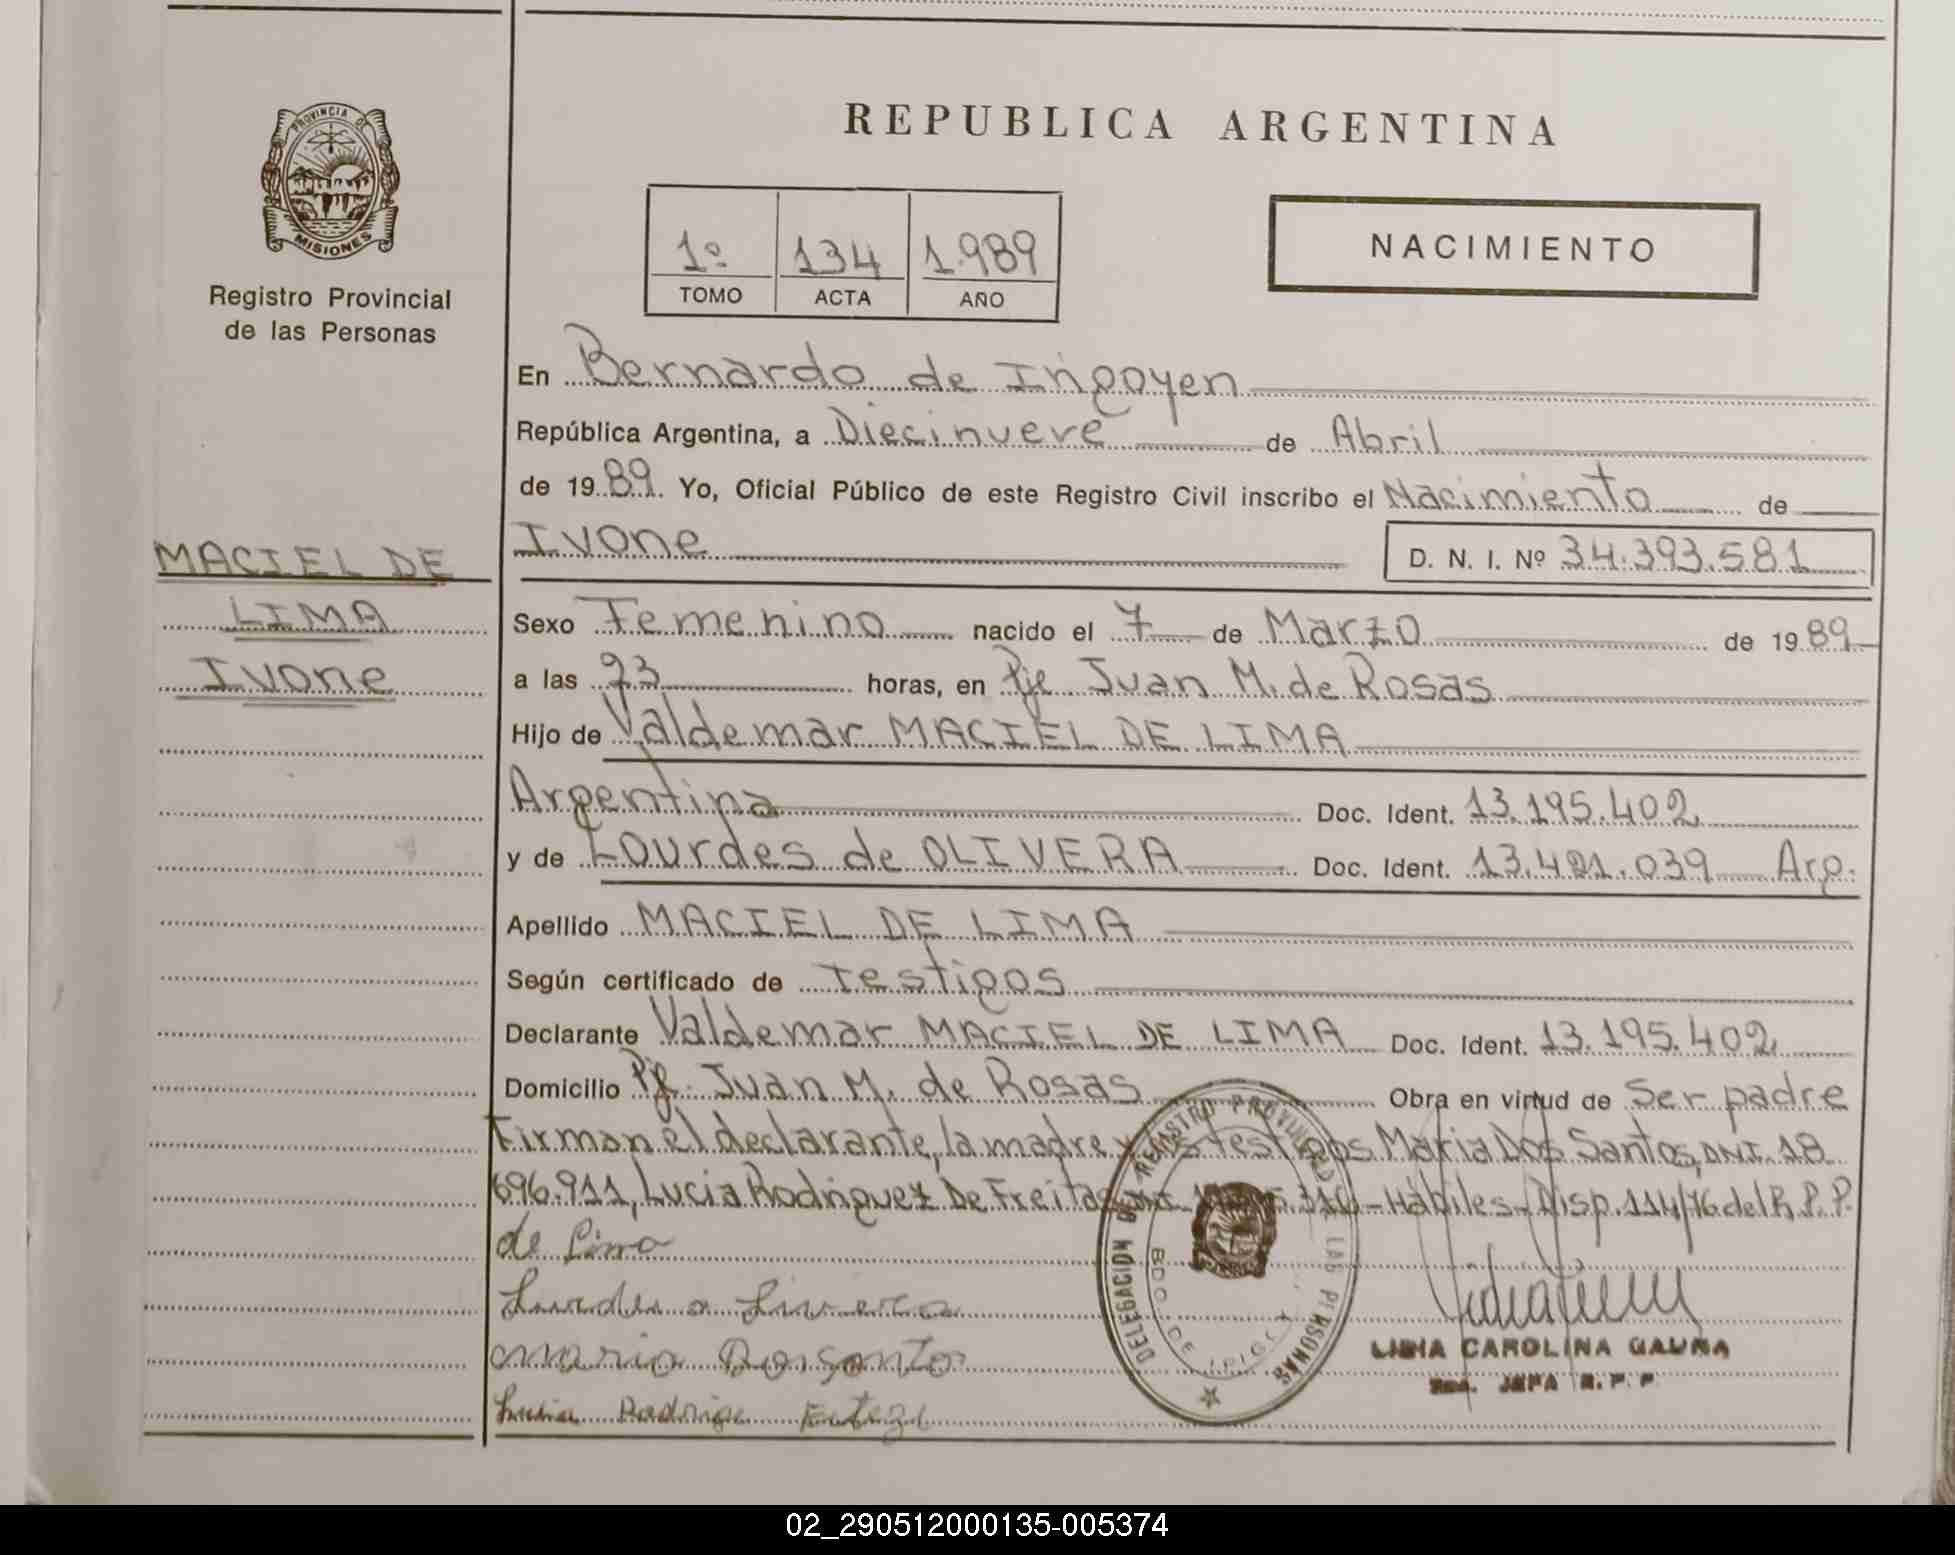 REPUBLICA ARGENTINA
PROVINCIA DE
MISIONES
Registro Provincial
de las Personas
1º 134 1.989
TOMO ACTA AÑO
NACIMIENTO
En Bernardo de Irigoyen
República Argentina, a Diecinueve de Abril
de 1989. Yo, Oficial Público de este Registro Civil inscribo el Nacimiento de
MACIEL DE
LIMA
Ivone
Ivone D. N. I. Nº 34.393.581
Sexo Femenino nacido el 7 de Marzo de 1989
a las 23 horas, en Pje Juan M. de Rosas
Hijo de Valdemar MACIEL DE LIMA
Argentina Doc. Ident. 13.195.402
y de Lourdes de OLIVERA Doc. Ident. 13.421.039 Arg.
Apellido MACIEL DE LIMA
Según certificado de Testigos
Declarante Valdemar MACIEL DE LIMA Doc. Ident. 13.195.402
Domicilio Pje. Juan M. de Rosas Obra en virtud de Ser padre
Firman el declarante, la madre y testigos Maria Dos Santos, DNI. 18
696.911, Lucia Rodriguez De Freitas DNI. - Hábiles - Disp. 114/76 del R.P.P.
de Lima
Maria Dos Santos
Lucia
DELEGACION DEL REGISTRO PROVINCIAL DE LAS PERSONAS
BDO. DE IRIGOYEN
LIDIA CAROLINA GAUNA
JEFA R.P.P.
02_290512000135-005374